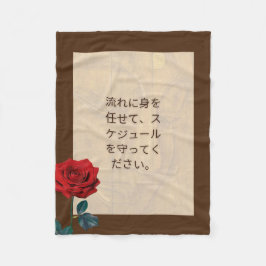 流れに身を
任せて、ス
ケジュール
を守ってく
ださい。